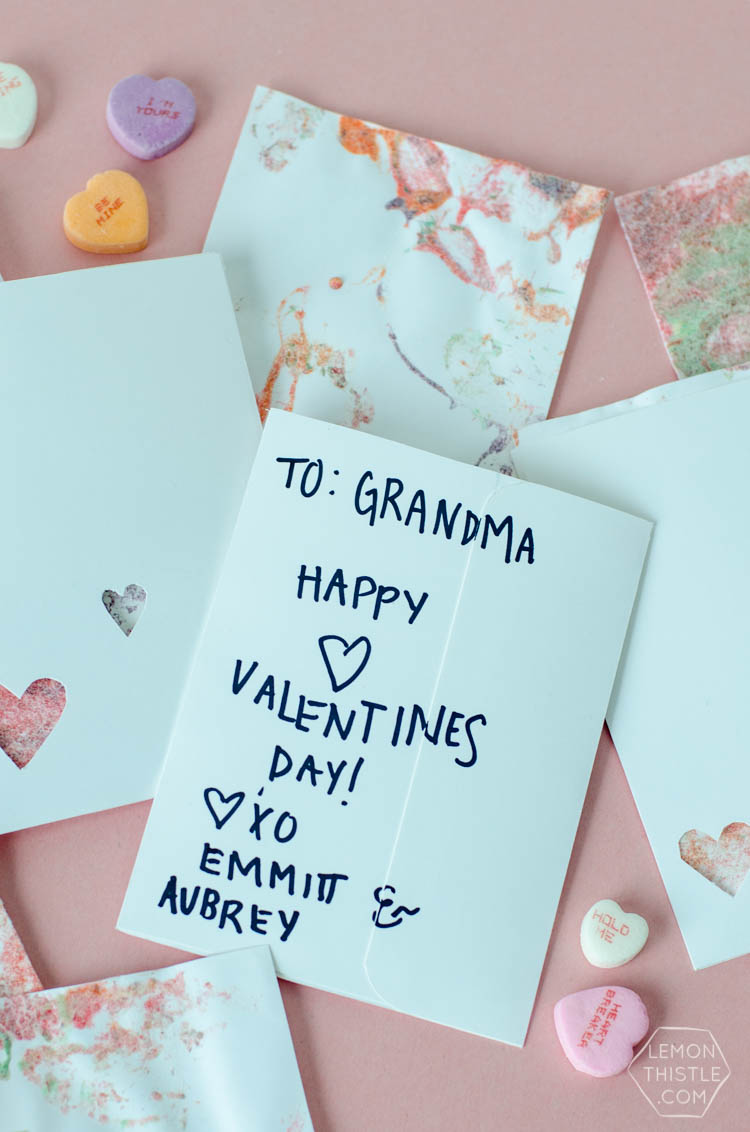 I'M
YOURS
BE
MINE
TO: GRANDMA
HAPPY
VALENTINES
DAY!
XO
EMMITT &
AUBREY
HOLD
ME
HEART
BREAKER
LEMON
THISTLE
.COM